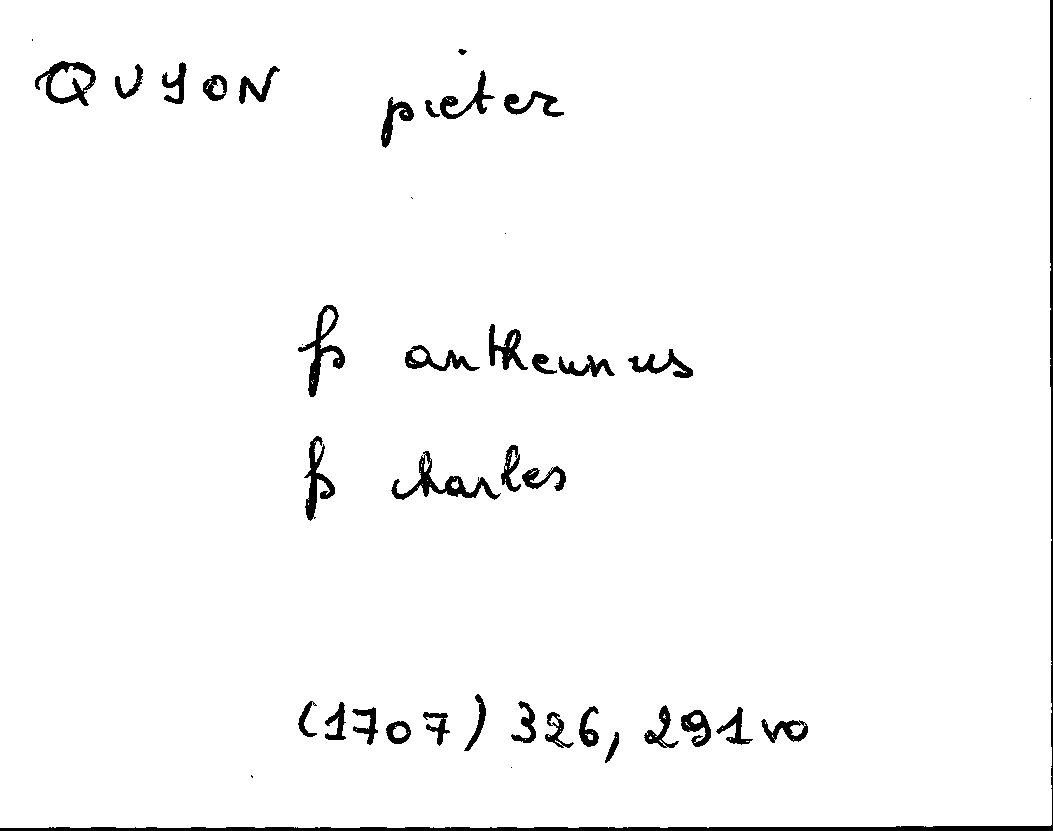 QUYON pieter
fs antheunus
fs charles
(1707) 326, 291vo